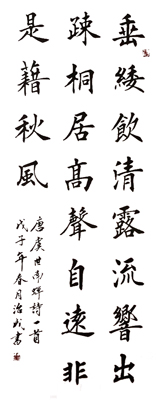 垂綾飲清露流響出
疎桐居高聲自遠非
是藉秋風
唐虞世南蟬詩一首
戊子年春月治成書